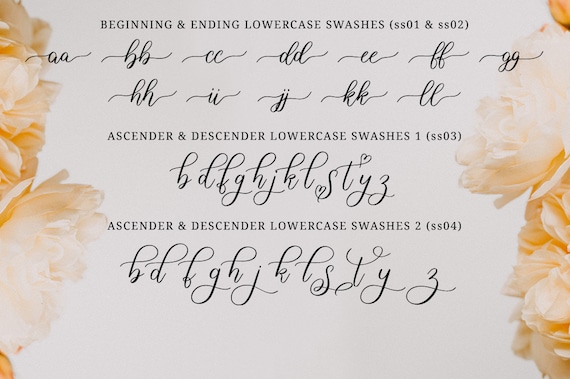 BEGINNING & ENDING LOWERCASE SWASHES (ss01 & ss02)
aa bb cc dd ee ff gg
hh ii jj kk ll
ASCENDER & DESCENDER LOWERCASE SWASHES 1 (ss03)
bdfghjklstyz
ASCENDER & DESCENDER LOWERCASE SWASHES 2 (ss04)
bdfghjklsty z